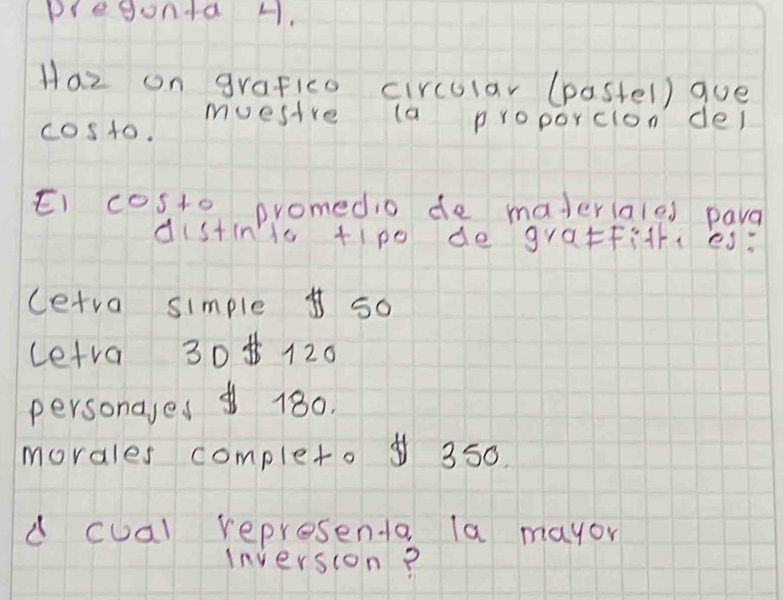 pregunta 4.
Haz un grafico circular (pastel) que
muestre la proporcion del
costo.
El costo promedio de materiales para
distinto tipo de graffiti es:
Letra simple $ 50
Letra 3D $ 120
personajes $ 180.
morales completo $ 350.
¿ cual representa la mayor
inversion?